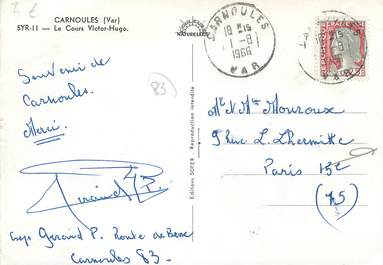 CARNOULES (Var)
5YR-11 - Le Cours Victor-Hugo.
NATURELLES
CARNOULES
18 H 15
1-8
1966
VAR
Souvenir de
Carnoules.
Merci.
83
Editions SOFER - Reproduction interdite
Mr & Mme Mouroux
9 Rue L. Lhermitte
Paris 15e
(75)
Gérard P. Route de Besse
Carnoules 83.